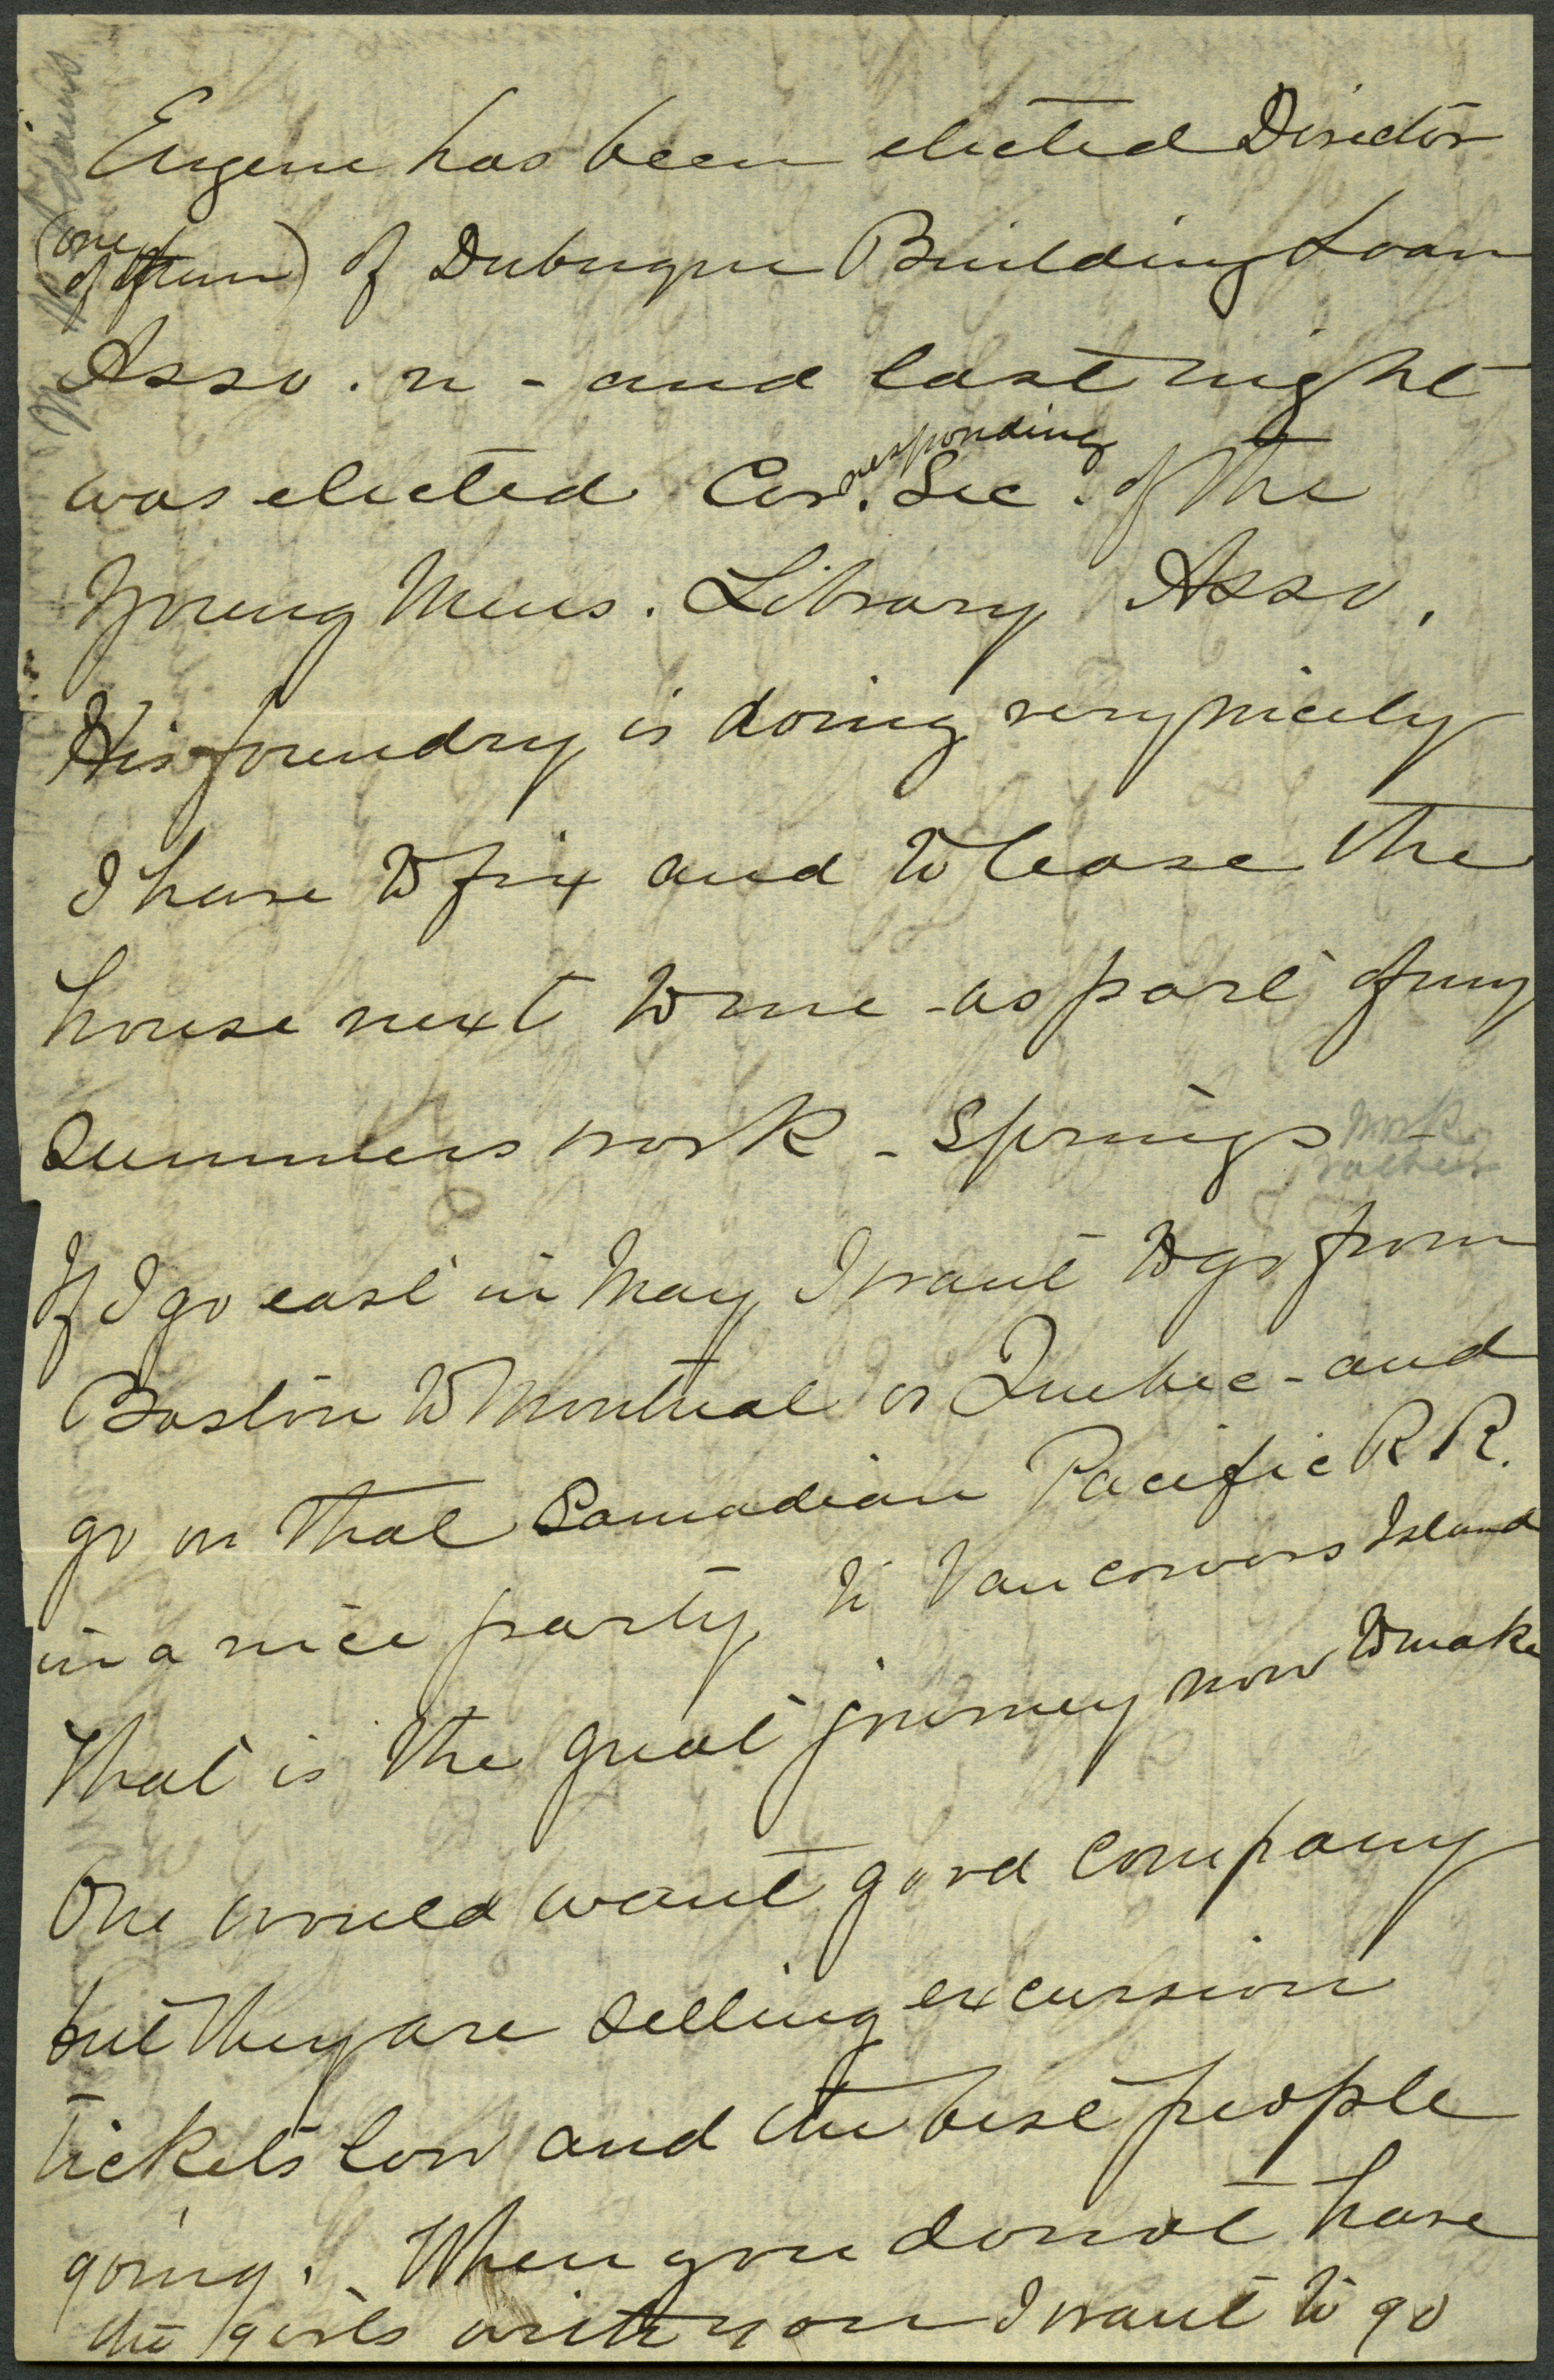 Eugene has been elected Director
(one of them) of Dubuque Building Loan
Asso.n - and last night
was elected Cor.responding Sec. of the
Young Mens. Library Asso.
His foundry is doing very nicely
I have to fix and to lease the
house next to me - as part of my
summers work - Springs work rather
If I go east in May I want to go from
Boston to Montreal or Quebec - and
go on that Canadian Pacific R R.
in a nice party to Vancouvers Island
That is the great journey now to make
One would want good company
but they are selling excursion
tickets low and the best people
going. When you do not have
the girls with you I want to go